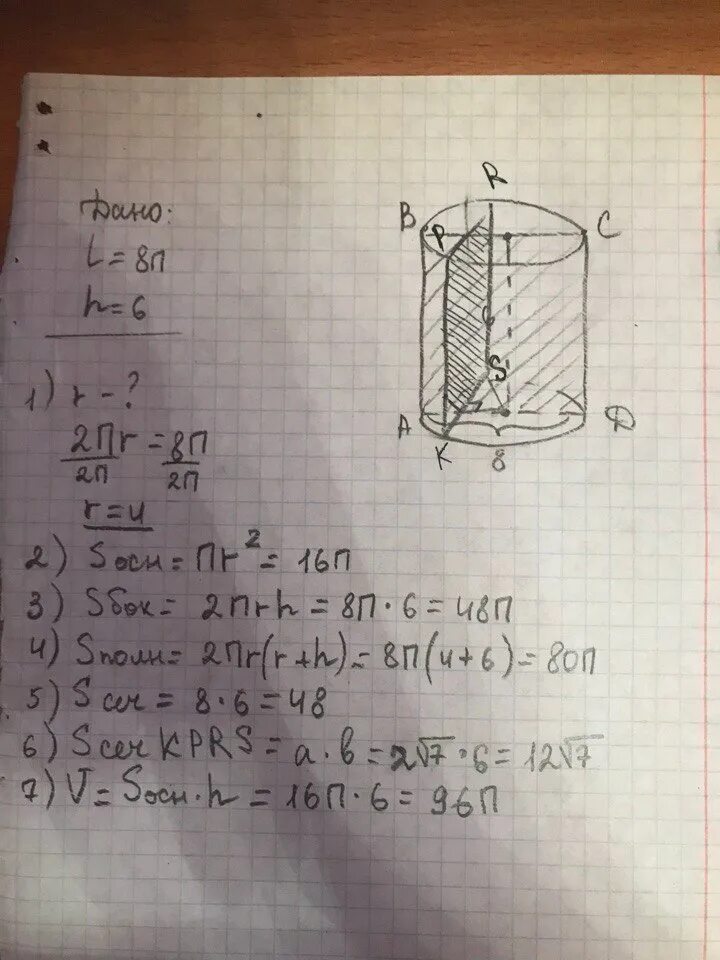 Дано:
L = 8П
h = 6
1) r - ?
2Пr = 8П
2П 2П
r = 4
2) Sосн = Пr² = 16П
3) Sбок = 2Пrh = 8П · 6 = 48П
4) Sполн = 2Пr(r + h) = 8П(4 + 6) = 80П
5) Sсеч = 8 · 6 = 48
6) Sсеч KPRS = a · b = 2√7 · 6 = 12√7
7) V = Sосн · h = 16П · 6 = 96П
R
B P C
6
S
A Д
K 8